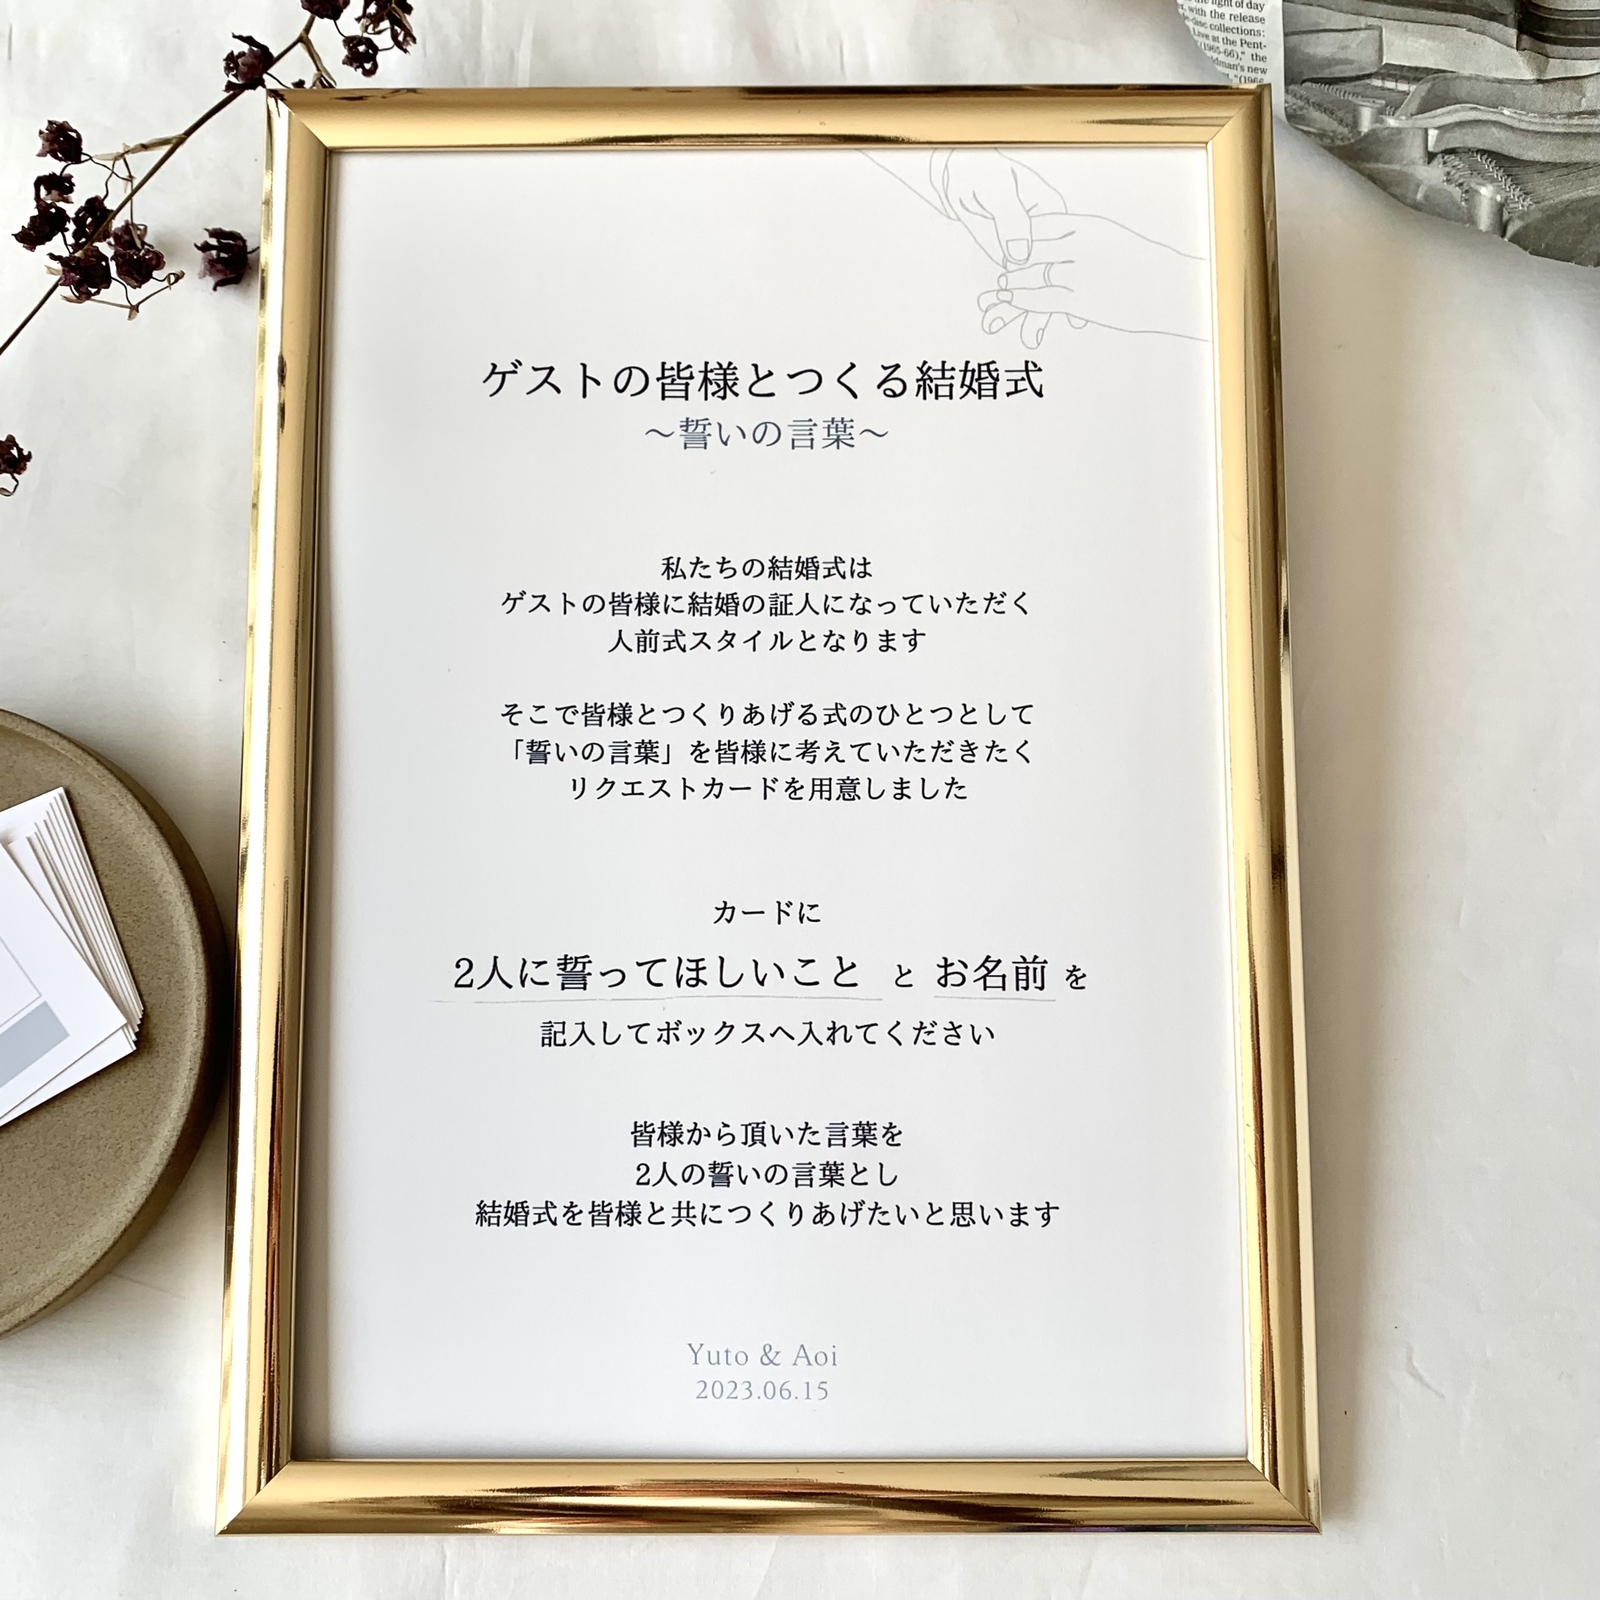 light of day
with the release
collections:
Live at the Pent-
(1965-66)," the
ldman's new
ゲストの皆様とつくる結婚式
〜誓いの言葉〜
私たちの結婚式は
ゲストの皆様に結婚の証人になっていただく
人前式スタイルとなります
そこで皆様とつくりあげる式のひとつとして
「誓いの言葉」を皆様に考えていただきたく
リクエストカードを用意しました
カードに
2人に誓ってほしいこと と お名前 を
記入してボックスへ入れてください
皆様から頂いた言葉を
2人の誓いの言葉とし
結婚式を皆様と共につくりあげたいと思います
Yuto & Aoi
2023.06.15